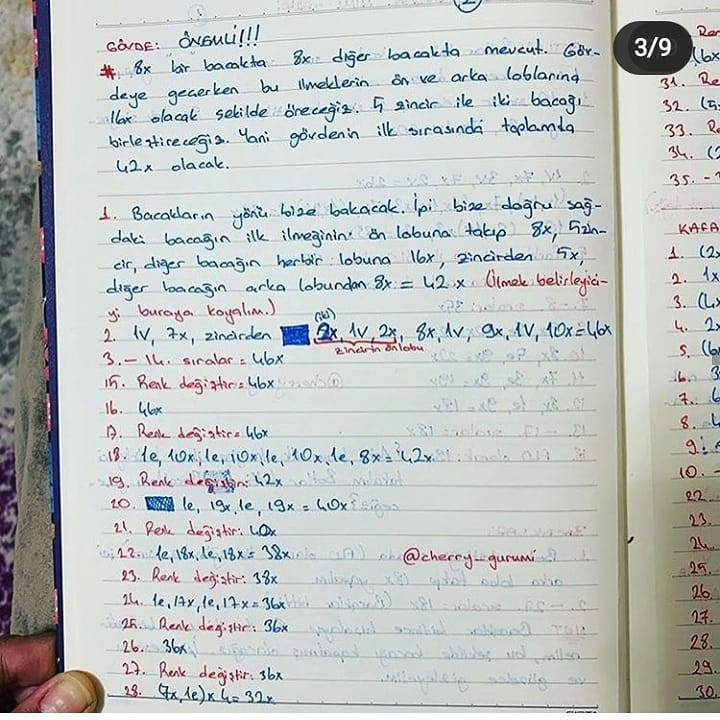 3/9
GÖVDE: ÖNEMLİ!!!
# 8x bir bacakta 8x diğer bacakta mevcut. Göv-
deye geçerken bu ilmeklerin ön ve arka loblarına
16x olacak şekilde öreceğiz. 5 zincir ile iki bacağı
birleştireceğiz. Yani gövdenin ilk sırasında toplamda
42x olacak.
1. Bacakların yönü bize bakacak. İpi bize doğru sağ-
daki bacağın ilk ilmeğinin ön lobuna takıp 8x, 5 zin-
cir, diğer bacağın herbir lobuna 16x, zincirden 5x,
diğer bacağın arka lobundan 8x = 42x (İlmek belirleyici-
yi buraya koyalım.)
(iki)
2. 1v, 7x, zincirden 2x, 1v, 2x, 8x, 1v, 9x, 1v, 10x = 46x
zincirin ön lobu
3. - 14. sıralar = 46x
15. Renk değiştir = 46x
16. 46x
17. Renk değiştir = 46x
18. 1e, 10x, 1e, 10x, 1e, 10x, 1e, 8x = 42x
19. Renk değiştir: 42x
20. 1e, 19x, 1e, 19x = 40x
21. Renk değiştir: 40x
22. 1e, 18x, 1e, 18x = 38x
@cherry_gurumi
23. Renk değiştir: 38x
24. 1e, 17x, 1e, 17x = 36x
25. Renk değiştir: 36x
26. 36x
27. Renk değiştir: 36x
28. 7x, 1e) x 4 = 32x
31. Re
32.
33. R
34. (2
35. -
KAFA
1. (2x
2. 1x
3. (4x
4. 2x
5. (6
6. 3
7.
8.
9.
10. -
22
23.
24.
25.
26.
27.
28.
29.
30.